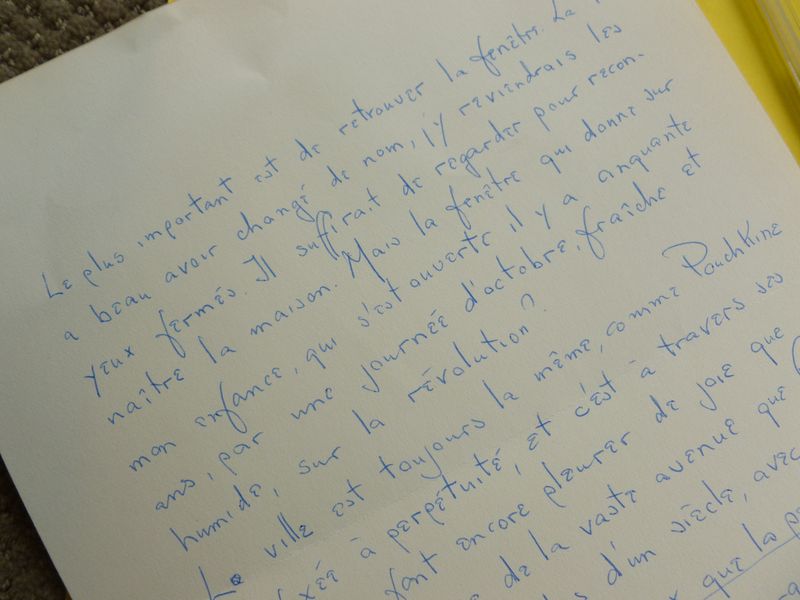 Le plus important est de retrouver la fenêtre. La
a beau avoir changé de nom, j'y reviendrais les
yeux fermés. Il suffirait de regarder pour recon-
naître la maison. Mais la fenêtre qui donne sur
mon enfance, qui s'est ouverte il y a cinquante
ans, par une journée d'octobre, fraîche et
humide, sur la révolution?
La ville est toujours la même, comme Pouchkine
fixée à perpétuité, et c'est à travers ses
font encore pleurer de joie que
de la vaste avenue que
d'un siècle, avec
que la